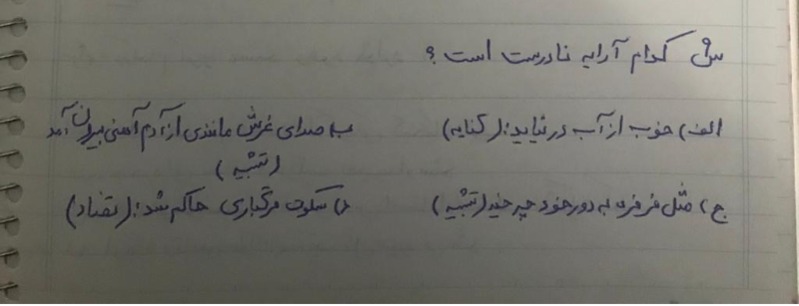 س) کدام آرایه نادرست است؟
الف) خوب از آب در نیاید: (کنایه) ب) صدای غرش مانندی از آدم آهنی بیرون آمد
(تشبیه)
ج) مثل فرفره به دور خود چرخید (تشبیه) د) سکوت مرگباری حاکم شد: (تضاد)